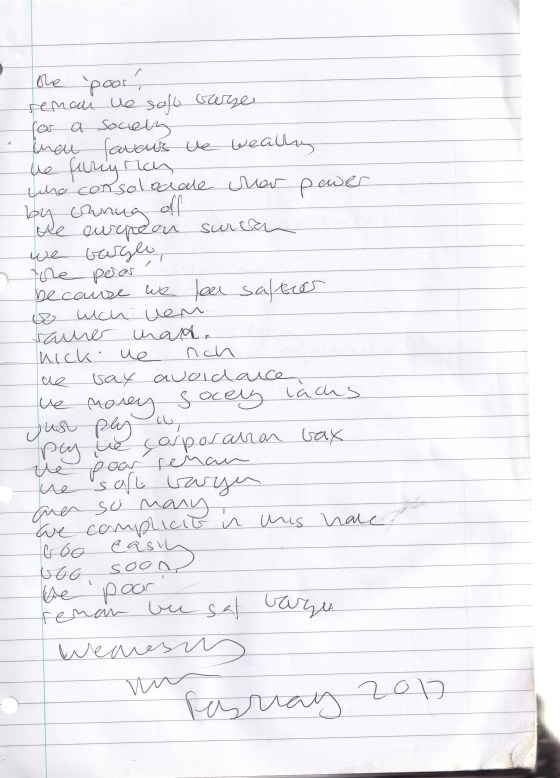 the 'poor',
remain the soft target
for a society
that favours the wealthy
the filthy rich
who consolidate their power
by
the european
we target,
'the poor'
because we feel safter
to kick them
rather than.
kick the rich
the tax avoidance.
the money society lacks
just pay it,
pay the corporation tax
the 'poor' remain
the soft target
and so many
are complicit in this hate.
too easily
too soon,
the 'poor'
remain the soft target
Wednesday
February 2017